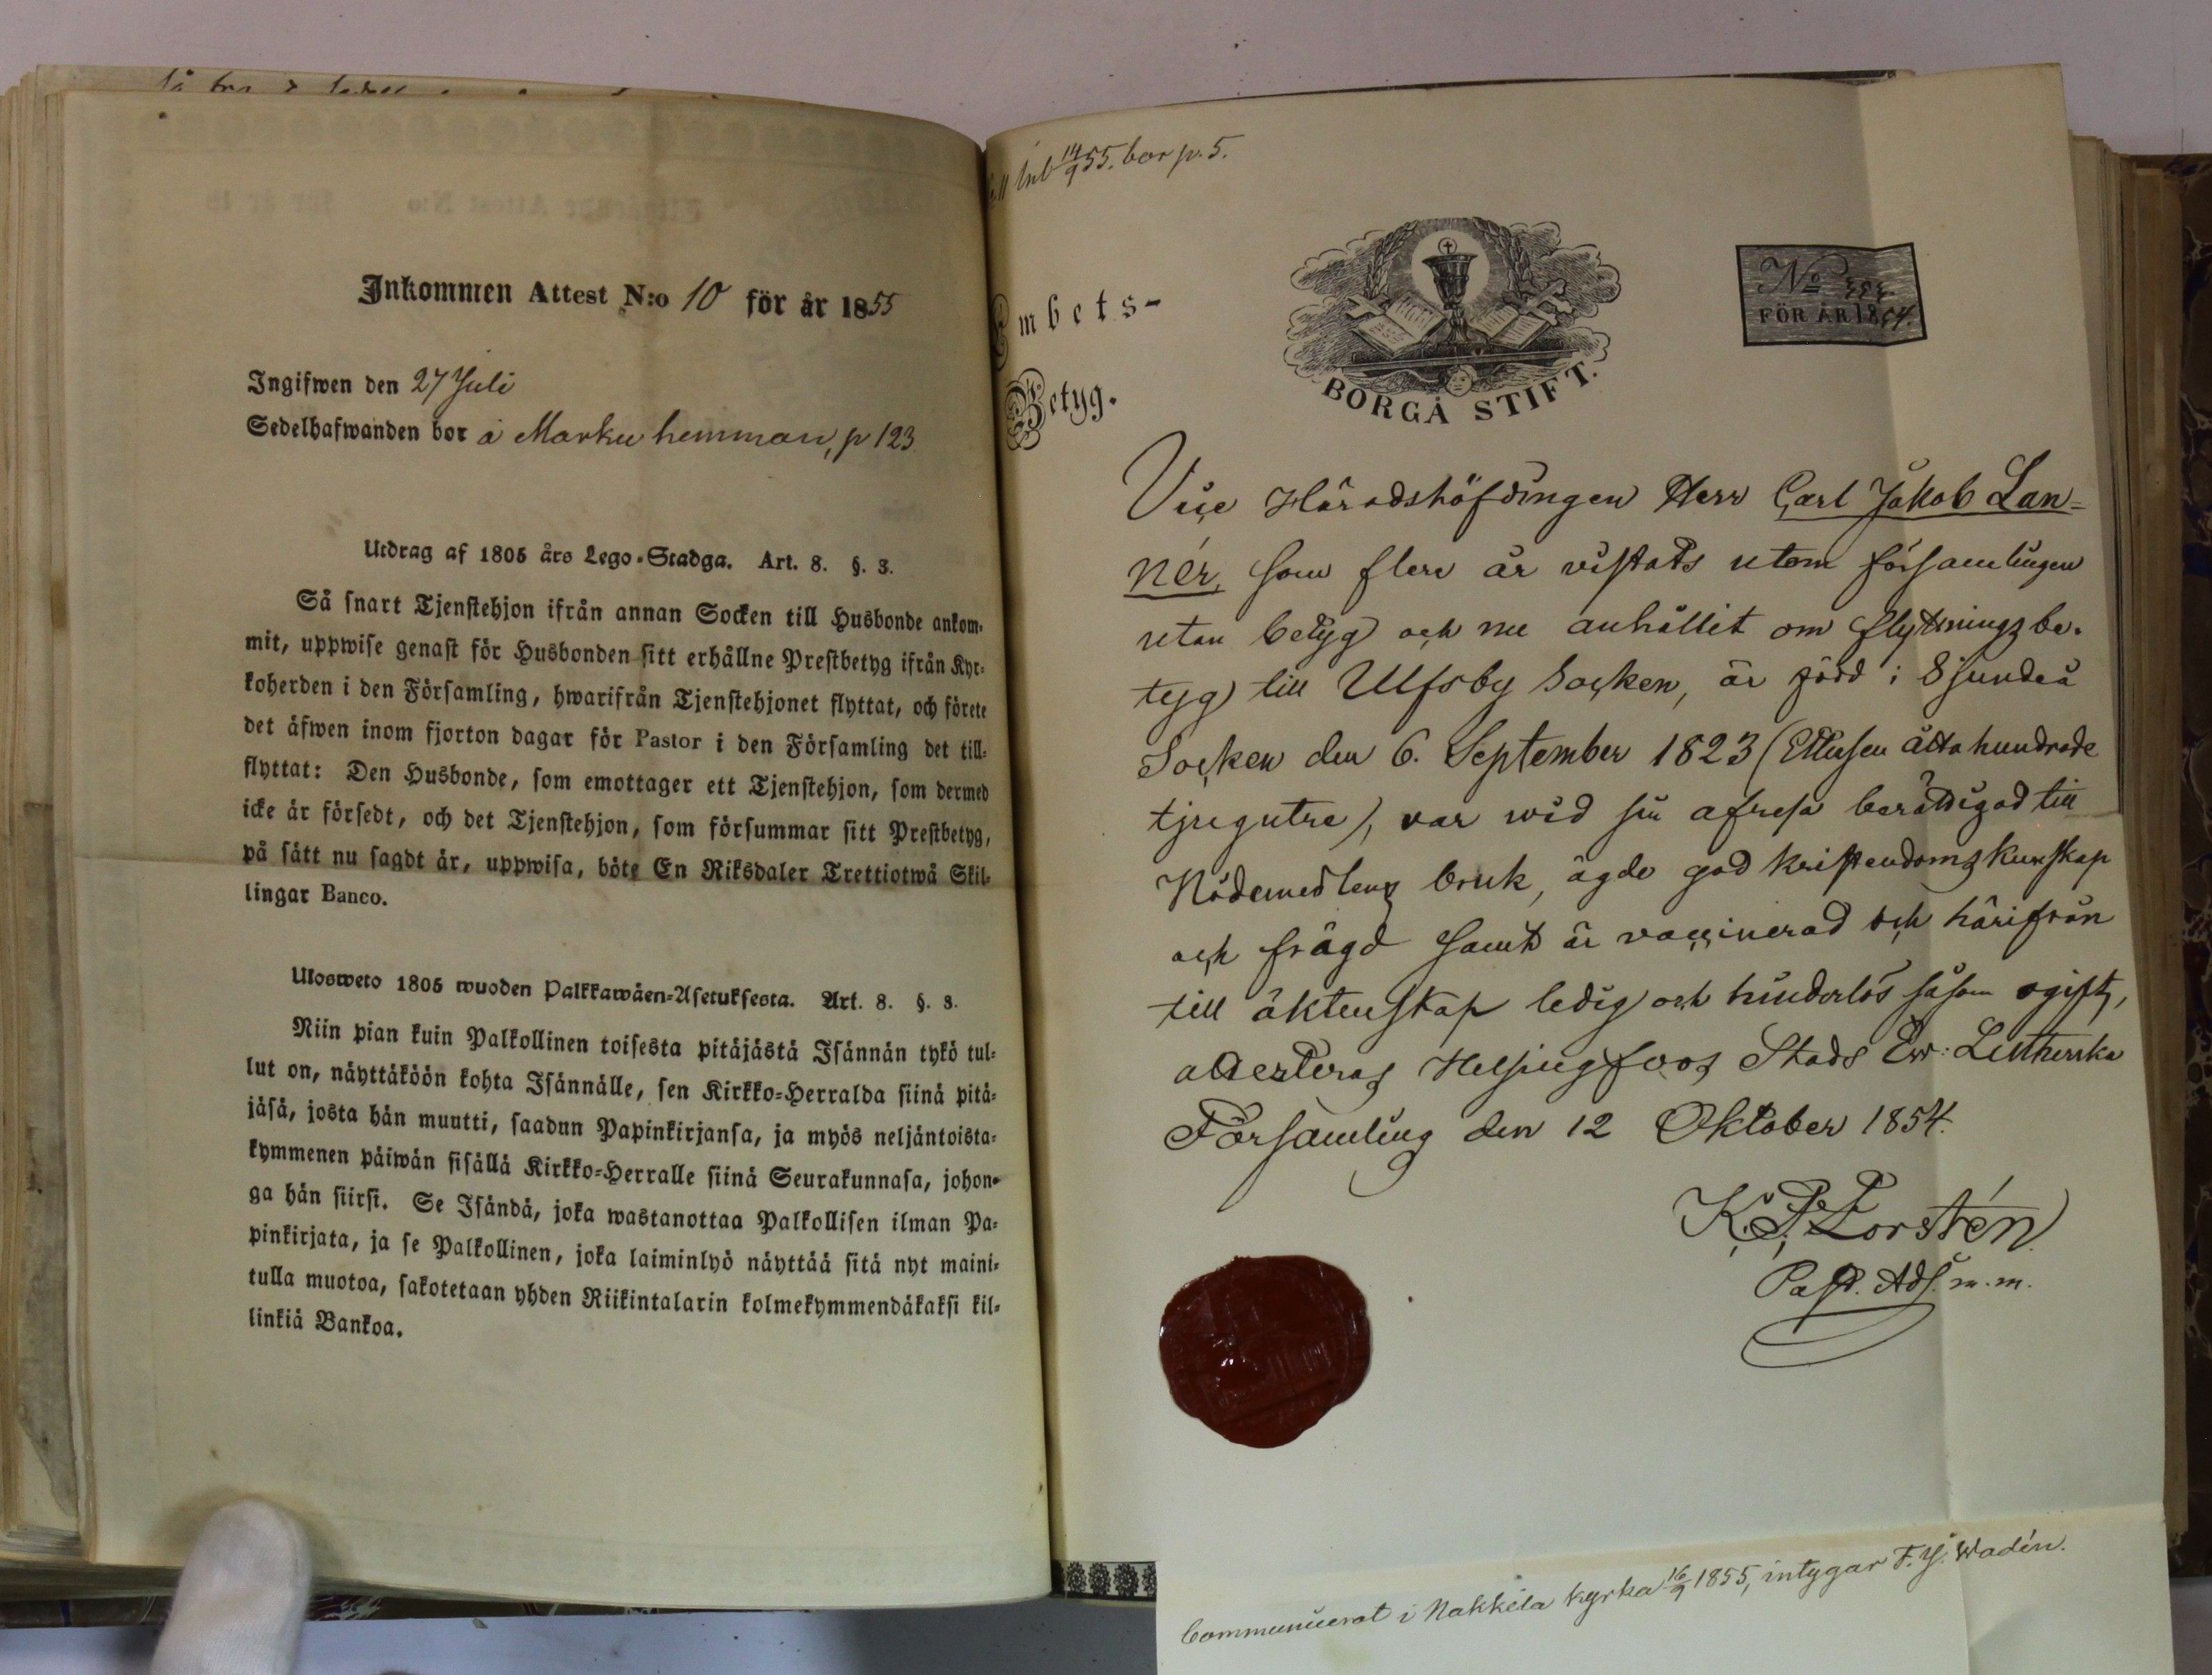 Inkommen Attest N:o 10 för år 1855
Ingifwen den 27 Juli
Sedelhafwanden bor å Marku hemman, p 123
Utdrag af 1805 års Lego-Stadga. Art. 8. §. 3.
Så snart Tjenstehjon ifrån annan Socken till Husbonde ankom-
mit, uppwise genast för Husbonden sitt erhållne Prestbetyg ifrån Kyr-
koherden i den Församling, hwarifrån Tjenstehjonet flyttat, och förete
det äfwen inom fjorton dagar för Pastor i den Församling det till-
flyttat: Den Husbonde, som emottager ett Tjenstehjon, som dermed
icke är försedt, och det Tjenstehjon, som försummar sitt Prestbetyg,
på sätt nu sagdt är, uppwisa, böte En Riksdaler Trettiotwå Skil-
lingar Banco.
Ulosweto 1805 wuoden Palkkawäen-Asetuksesta. Art. 8. §. 3.
Niin pian kuin Palkollinen toisesta pitäjästä Isännän tykö tul-
lut on, näyttäköön kohta Isännälle, sen Kirkko-Herralda siinä pitä-
jäsä, josta hän muutti, saadun Papinkirjansa, ja myös neljäntoista-
kymmenen päiwän sisällä Kirkko-Herralle siinä Seurakunnasa, johon-
ga hän siirsi. Se Isändä, joka wastanottaa Palkollisen ilman Pa-
pinkirjata, ja se Palkollinen, joka laiminlyö näyttää sitä nyt maini-
tulla muotoa, sakotetaan yhden Riikintalarin kolmekymmendäkaksi kil-
linkiä Bankoa.
inb 14/9 55. bor p. 5.
Embets-
Betyg.
BORGÅ STIFT.
No
FÖR ÅR 1854.
Vice Häradshöfdingen Herr Carl Jakob Lan=
nér, som flere år vistats utom församlingen
utan betyg och nu anhållit om flyttningsbe-
tyg till Ulfsby Socken, är född i Sjundeå
Socken den 6. September 1823 (Ettusen åttahundrade
tjugutre), var wid sin afresa berättigad till
Nådemedlens bruk, ägde god kristendomskunskap
och frägd samt är vaccinerad och härifrån
till äktenskap ledig och hinderlös såsom ogift,
attesteras Helsingfors Stads Ew: Lutherska
Församling den 12 Oktober 1854.
K. F. Forstén
Past. Adj. m. m.
Communicerat i Nakkila kyrka 16/9 1855, intygar F. J. Wadén.